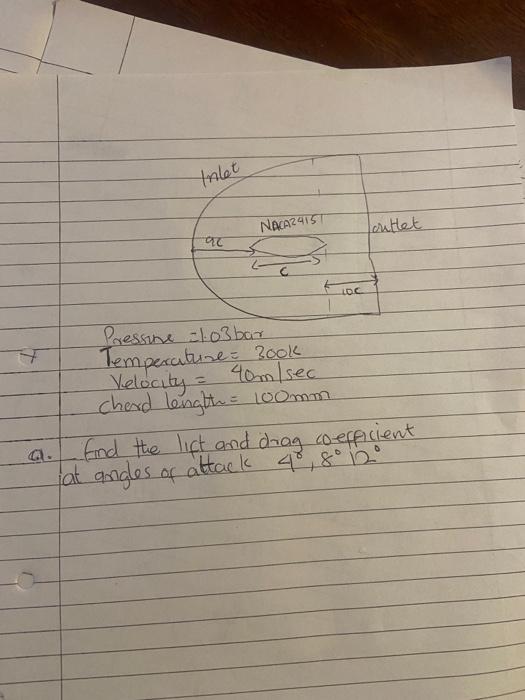 Inlet
NACA2415
outlet
9c
c
10c
Pressure = 1.03 bar
Temperature = 300k
Velocity = 40m/sec
Chord length = 100mm
Q. find the lift and drag coefficient
at angles of attack 4°, 8° 12°